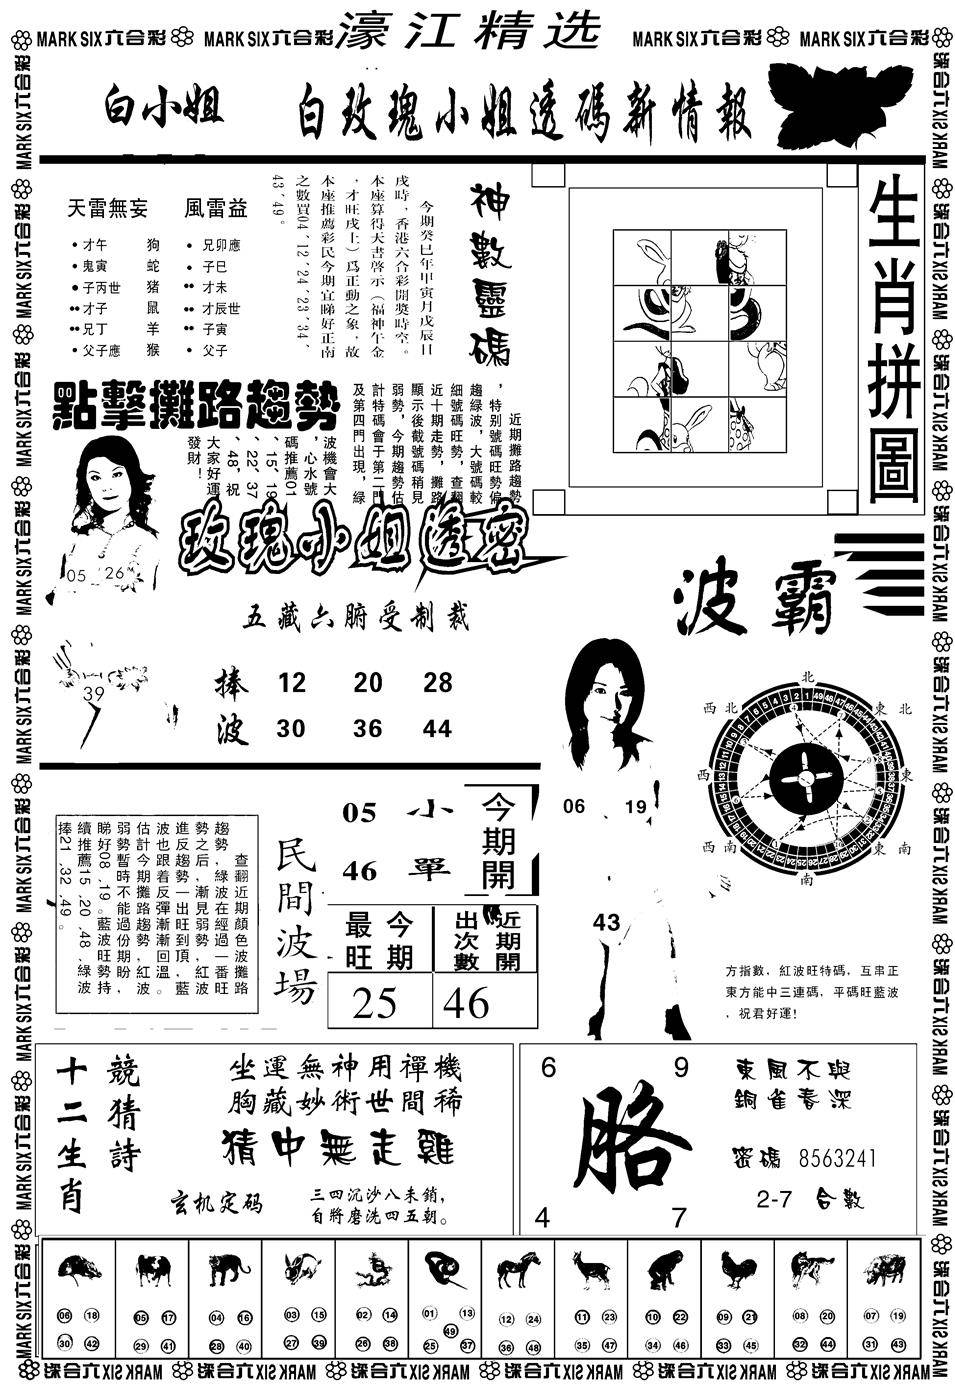 MARK SIX六合彩 MARK SIX六合彩 濠江精选 MARK SIX六合彩 MARK SIX六合彩
白小姐 白玫瑰小姐透碼新情報
天雷無妄 風雷益
•才午 狗 •兄卯應
•鬼寅 蛇 •子巳
●子丙世 猪 ••才未
••才子 鼠 ••才辰世
••兄丁 羊 ••子寅
•父子應 猴 •父子
今期癸巳年甲寅月戊辰日
戌時，香港六合彩開獎時空。
本座算得天書啓示（福神午金
，才旺戌上）爲正動之象，故
本座推薦彩民今期宜睇好正南
之數買04﹑12﹑24﹑23﹑34﹑
43﹑49。
神數靈碼
生肖拼圖
點擊攤路趨勢
近期攤路趨勢
，特別號碼旺勢偏
趨綠波，大號碼較
細號碼旺勢，查翻
近十期走勢，攤路
顯示後截號碼稍見
弱勢，今期趨勢估
計特碼會于第二門
及第四門出現，綠
波機會大
，心水號
碼推薦01
、15、19
、22、37
、48，祝
大家好運
發財！
05 26
39
玫瑰小姐透密
五藏六腑受制裁
捧 12 20 28
波 30 36 44
波霸
北
西北 東北
西 東
西南 東南
南
06 19
43
方指數，紅波旺特碼，互串正
東方能中三連碼，平碼旺藍波
，祝君好運！
查翻近期顏色波攤路
趨勢，綠波在經過一番旺
勢之后，漸見弱勢，紅波
進反趨勢一出旺到頂，藍
波也跟着反彈漸回溫。
估計今期攤路趨勢紅波
弱勢暫時不能過份期盼，
睇好08﹑19。藍波旺勢持
續推薦15﹑20﹑48﹑綠波
捧21﹑32﹑49。
民間波場
05 小
46 單
今期開
今期最旺
近期開出次數
25 46
十二生肖
競猜詩
坐運無神用禪機
胸藏妙術世間稀
猜中無走雞
玄机定码
三四沉沙八未銷，
自將磨洗四五朝。
6 9
胳
4 7
東風不與
銅雀春深
密碼 8563241
2-7 合數
06 18 05 17 04 16 03 15 02 14 01 13 12 24 11 23 10 22 09 21 08 20 07 19
49
30 42 29 41 28 40 27 39 26 38 25 37 36 48 35 47 34 46 33 45 32 44 31 43
MARK SIX六合彩 MARK SIX六合彩 MARK SIX六合彩 MARK SIX六合彩 MARK SIX六合彩 MARK SIX六合彩